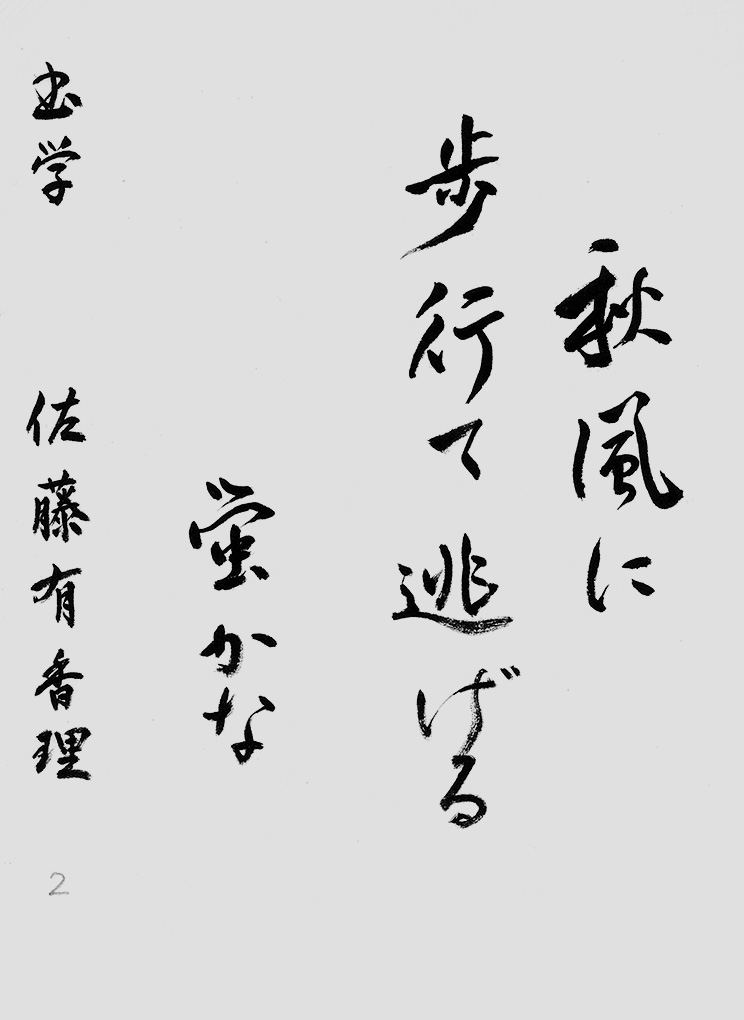 秋風に
歩行て逃げる
蛍かな
書学 佐藤有香理
2